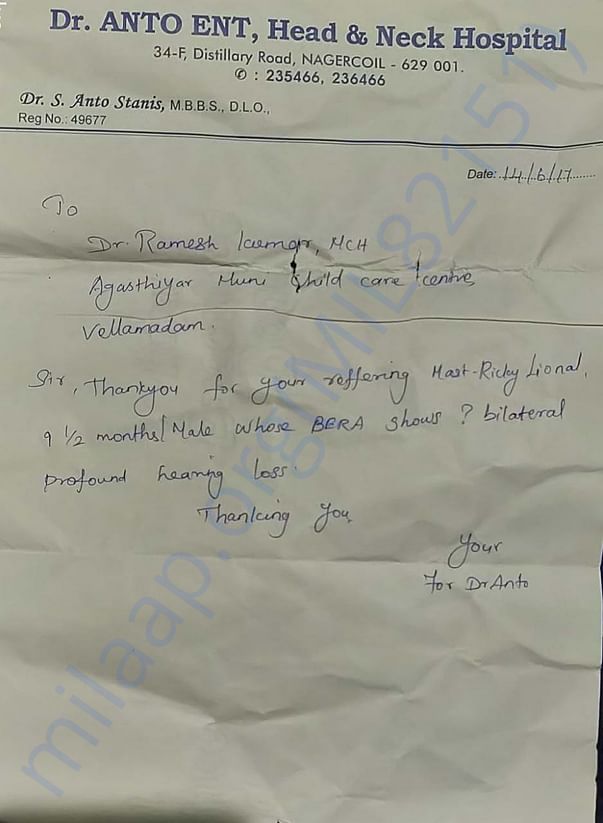 Dr. ANTO ENT, Head & Neck Hospital
34-F, Distillary Road, NAGERCOIL - 629 001.
✆ : 235466, 236466
Dr. S. Anto Stanis, M.B.B.S., D.L.O.,
Reg No.: 49677
Date: 14/6/17
To
Dr. Ramesh kumar, MCH
Agasthiyar Muni Child care centre,
Vellamadam.
Sir, Thankyou for your reffering Mast-Ricky Lional,
9 1/2 months/Male whose BERA shows ? bilateral
profound hearing loss.
Thanking you,
Your
For Dr Anto
milaap.org/MIL821517